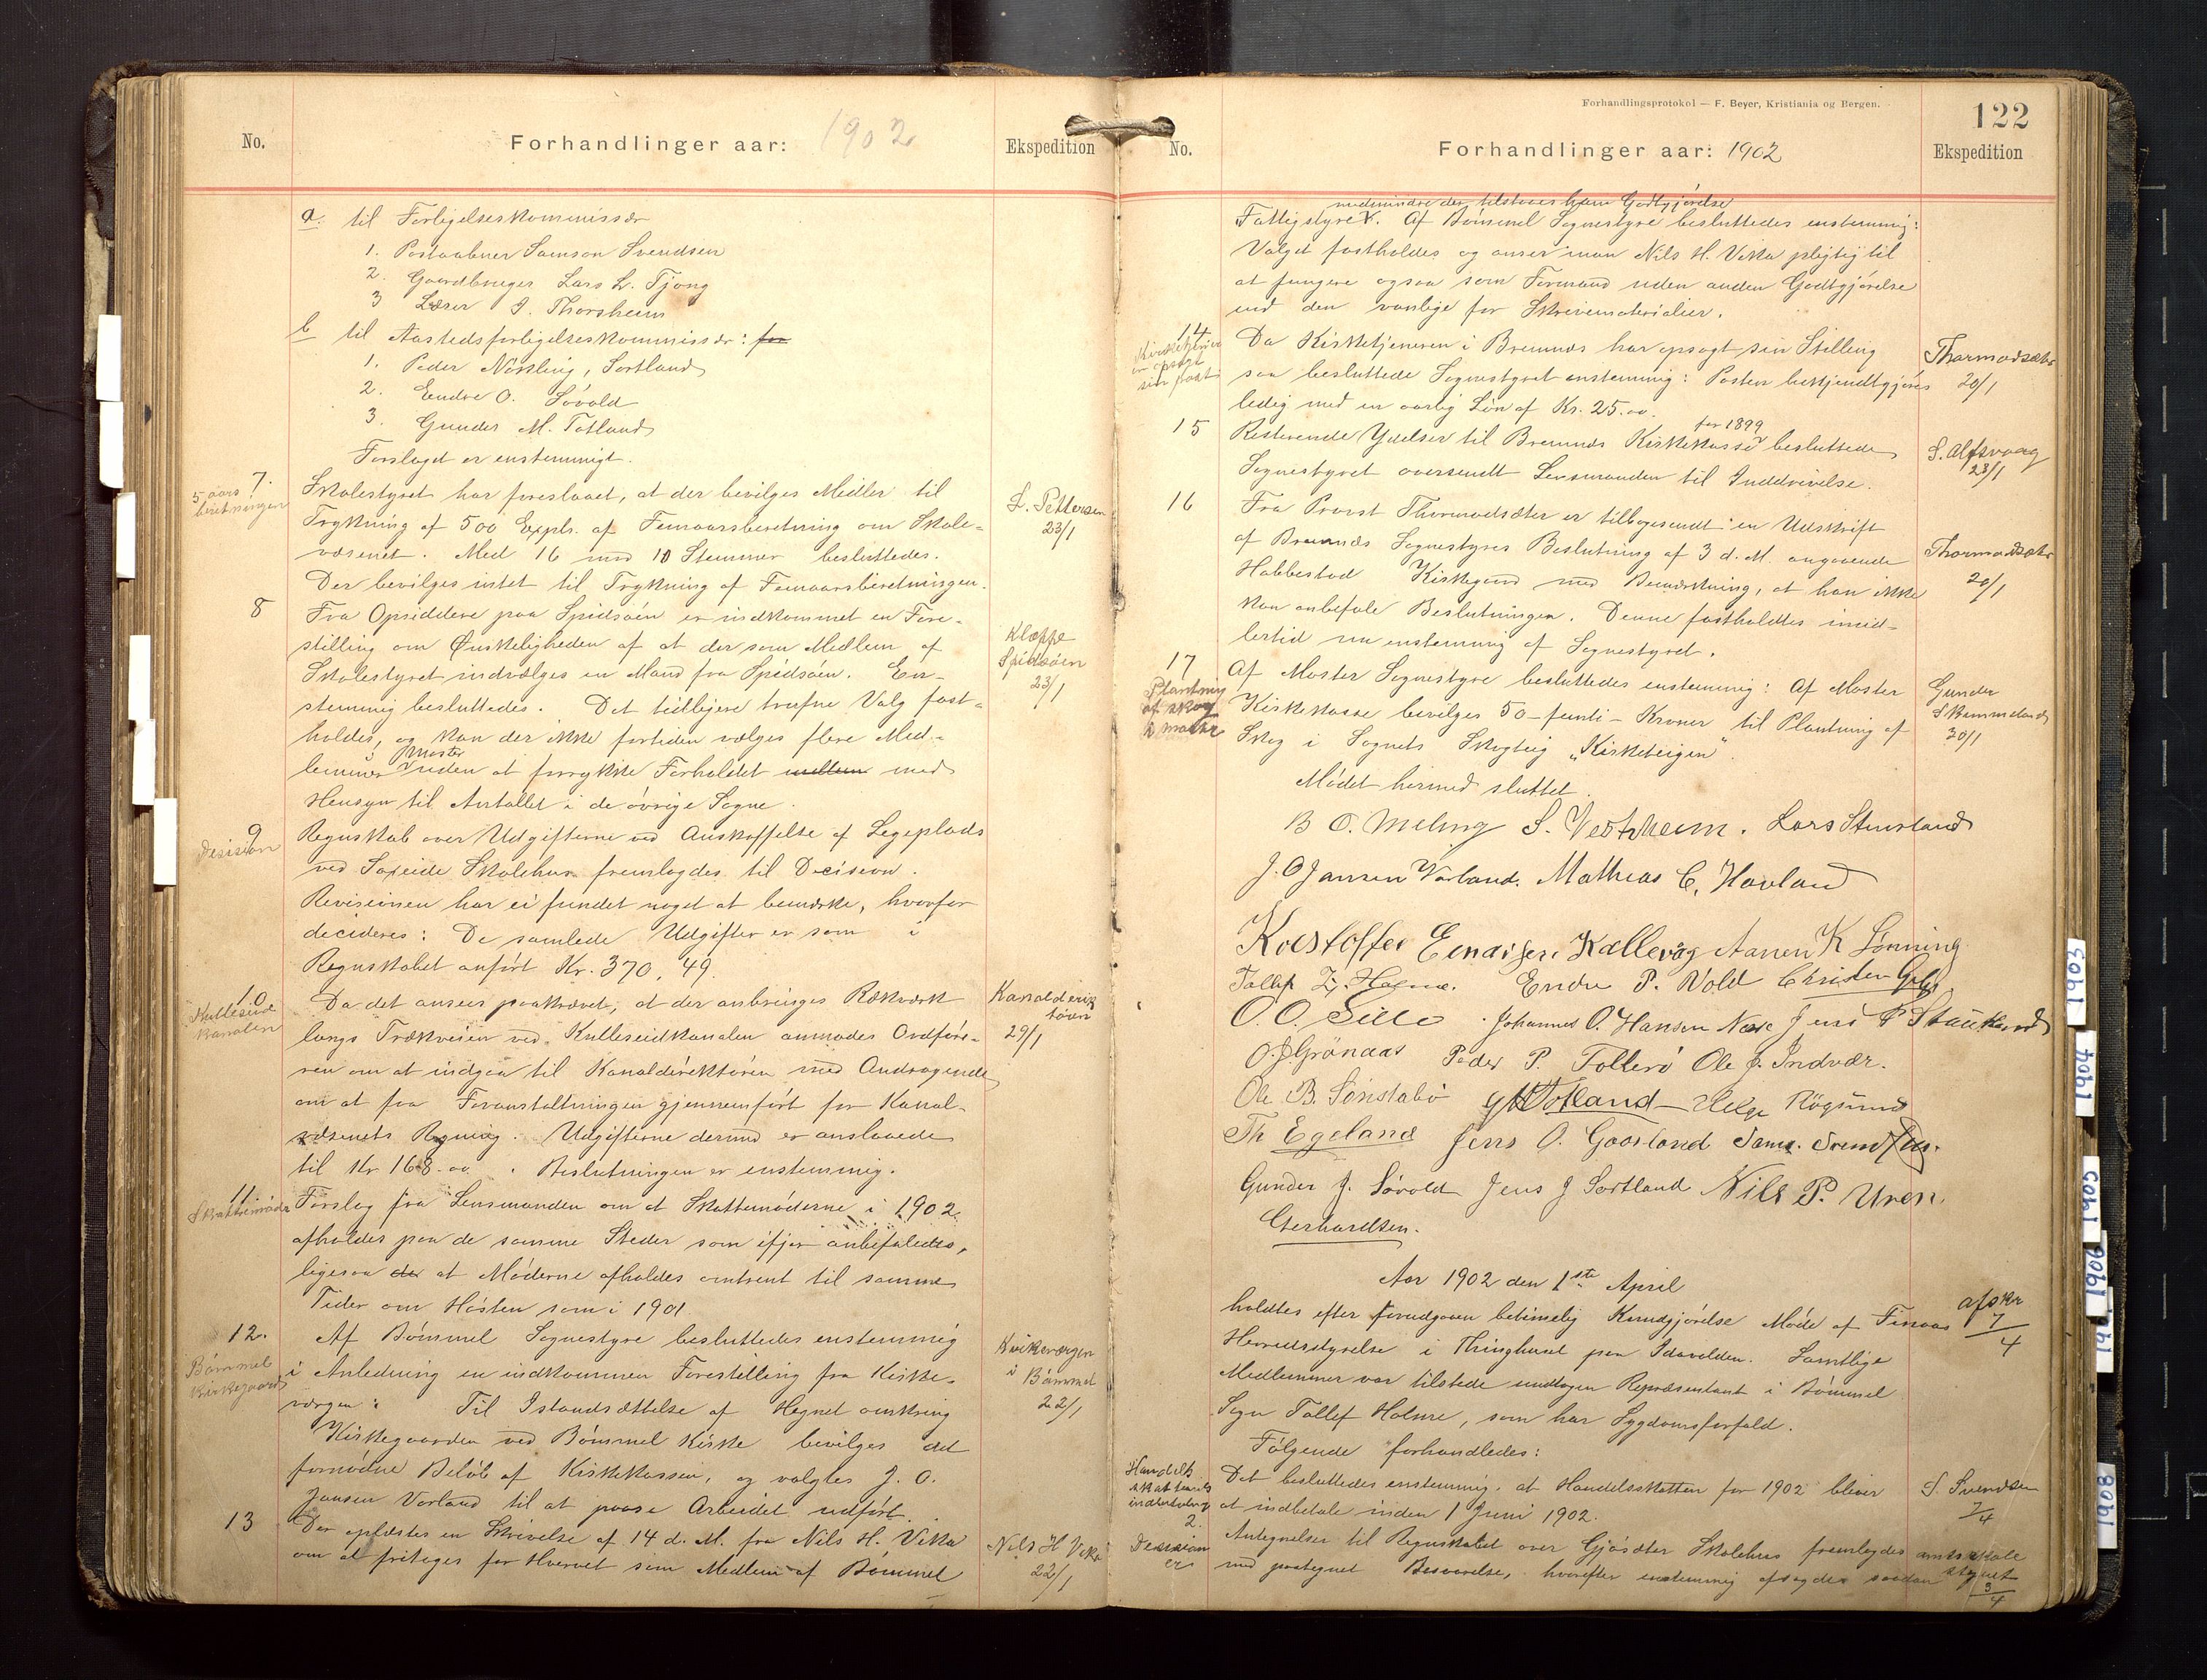 No.
Forhandlinger aar: 1902
Ekspedition
a. til Forligelseskommissær
1. Postaabner Samson Svendsen
2. Gaardbruger Lars L. Tjong
3 Lærer J. Thorsheim
b til Aastedsforligelseskommissær: for
1. Peder Nordling, Sortland
2. Endre O. Søvold
3. Gunder M. Totland
Forslaget er enstemmigt.
7.
5 aars beretningen
Skolestyret har foreslaaet, at der bevilges Midler til
Trykning af 500 Expl. af Femaarsberetning om Skole-
væsenet. Med 16 mod 10 Stemmer besluttedes.
Der bevilges intet til Trykning af Femaarsberetningen.
L. Pettersen
23/1
8
Fra Opsiddere paa Spidsøen er indkommet en Fore-
stilling om Ønskeligheden af at der som Medlem af
Skolestyret indvælges en Mand fra Spidsøen. En-
stemmig besluttedes. Det tidligere trufne Valg fast-
holdes, og kan der ikke fortiden vælges flere Med-
lemmer i Moster uden at forrykke Forholdet mellem med
Hensyn til Antallet i de øvrige Sogne.
Kleppe
Spidsøen
23/1
9
Desision
Regnskab over Udgifterne ved Anskaffelse af Legeplads
ved Søreide Skolehus fremlagdes til Decision.
Revisionen har ei fundet noget at bemærke, hvorfor
decideres: De samlede Udgifter er som i
Regnskabet anført Kr. 370,49.
10
Kulleseid
Kanalen
Da det ansees paakrævet, at der anbringes Rækværk
langs Trækveien ved Kulleseidkanalen anmodes Ordføre-
ren om at indgaa til Kanaldirektøren med Andragende
om at faa Foranstaltningen gjennemført for Kanal-
væsenets Regning. Udgifterne dermed er anslaaede
til Kr 168.00. Beslutningen er enstemmig.
Kanaldirek
tøren
29/1
11
Skattemøder
Forslag fra Lensmanden om at Skattemøderne i 1902
afholdes paa de samme Steder som ifjor anbefaledes,
ligesaa der at Møderne afholdes omtrent til samme
Tider om Høsten som i 1901
12.
Bømmel
Kirkegaard
Af Bømmel Sognestyre besluttedes enstemmig
i Anledning en indkommen Forestilling fra Kirke-
værgen: Til Istandsættelse af Hegnet omkring
Kirkegaarden ved Bømmel Kirke bevilges det
fornødne Beløb af Kirkekassen, og valgtes J. O.
Jansen Vorland til at paase Arbeidet udført.
Kirkeværgen
i Bømmel
22/1
13
Der oplæstes en Skrivelse af 14 d. M. fra Nils H. Vika
om at fritages for Hvervet som Medlem af Bømmel
Nils H Vika
22/1
Forhandlingsprotokol — F. Beyer, Kristiania og Bergen.
122
No.
Forhandlinger aar: 1902
Ekspedition
medmindre der tilstaaes ham Godtgjørelse
Fattigstyre. Af Bømmel Sognestyre besluttedes enstemmig:
Valget fastholdes og anser man Nils H. Vika pligtig til
at fungere ogsaa som Formand uden anden Godtgjørelse
end den vanlige for Skrivematerialier.
14
Kirketjener
en opsagt
sin post
Da Kirketjeneren i Bremnes har opsagt sin Stilling
saa besluttede Sognestyret enstemmig: Posten bekjendtgjøres
ledig med en aarlig Løn af Kr. 25.00.
Thormodsæter
20/1
15
Resterende Ydelser til Bremnes Kirkekasse for 1899 besluttede
Sognestyret oversendt Lensmanden til Inddrivelse.
S. Alfsvaag
23/1
16
Fra Provst Thormodsæter er tilbagesendt en Udskrift
af Bremnes Sognestyres Beslutning af 3 d. M. angaaende
Habbestad Kirkegaard med Bemærkning, at han ikke
kan anbefale Beslutningen. Denne fastholdtes imid-
lertid nu enstemmig af Sognestyret.
Thormodsæter
20/1
17
Plantning
af skog
i Moster
Af Moster Sognestyre besluttedes enstemmig: Af Moster
Kirkekasse bevilges 50 - femti - Kroner til Plantning af
Skog i Sognets Skogteig „Kirketeigen".
Gunder
Skimmeland
30/1
Mødet hermed sluttet.
B O. Meling S. Vestvheim. Lars Stensland
J. O Jansen Vorland. Mathias C. Havland
Kristoffer Einarsen Kallevåg Aanen K Lønning
Tollef Z. Holme. Endre P. Vold Christen Gjil
O. O. Lillo Johannes O. Hansen Næse Jens P Stautland
O. J. Grønaas Peder P. Tollerø Ole J. Indvær.
Ole B. Sønstabø G M Totland Helge Røgsund
Th Egeland Jens O. Gaasland Sams. Svendsen.
Gunder J. Søvold Jens J Sortland Nils P. Uren.
Gerhardtsen.
Aar 1902 den 1ste April
holdtes efter forudgaaen betimelig Kundgjørelse Møde af Finaas
Herredsstyrelse i Thinghuset paa Idavolden. Samtlige
Medlemmer var tilstede undtagen Repræsentant i Bømmel
Sogn Tollef Holme, som har Sygdomsforfald.
Følgende forhandledes:
afskr
7/4
Handels
skattens
indbetaling
Det besluttedes enstemmig, at Handelsskatten for 1902 bliver
at indbetale inden 1 Juni 1902.
S. Svendsen
7/4
2.
Desision
er
Antegnelser til Regnskabet over Gjøsæter Skolehus fremlagdes
med paategnet Besvarelse, hvorefter enstemmig afsagdes saadan
amtsskole
styret
3/4
1903
1904
1905
1906
1908